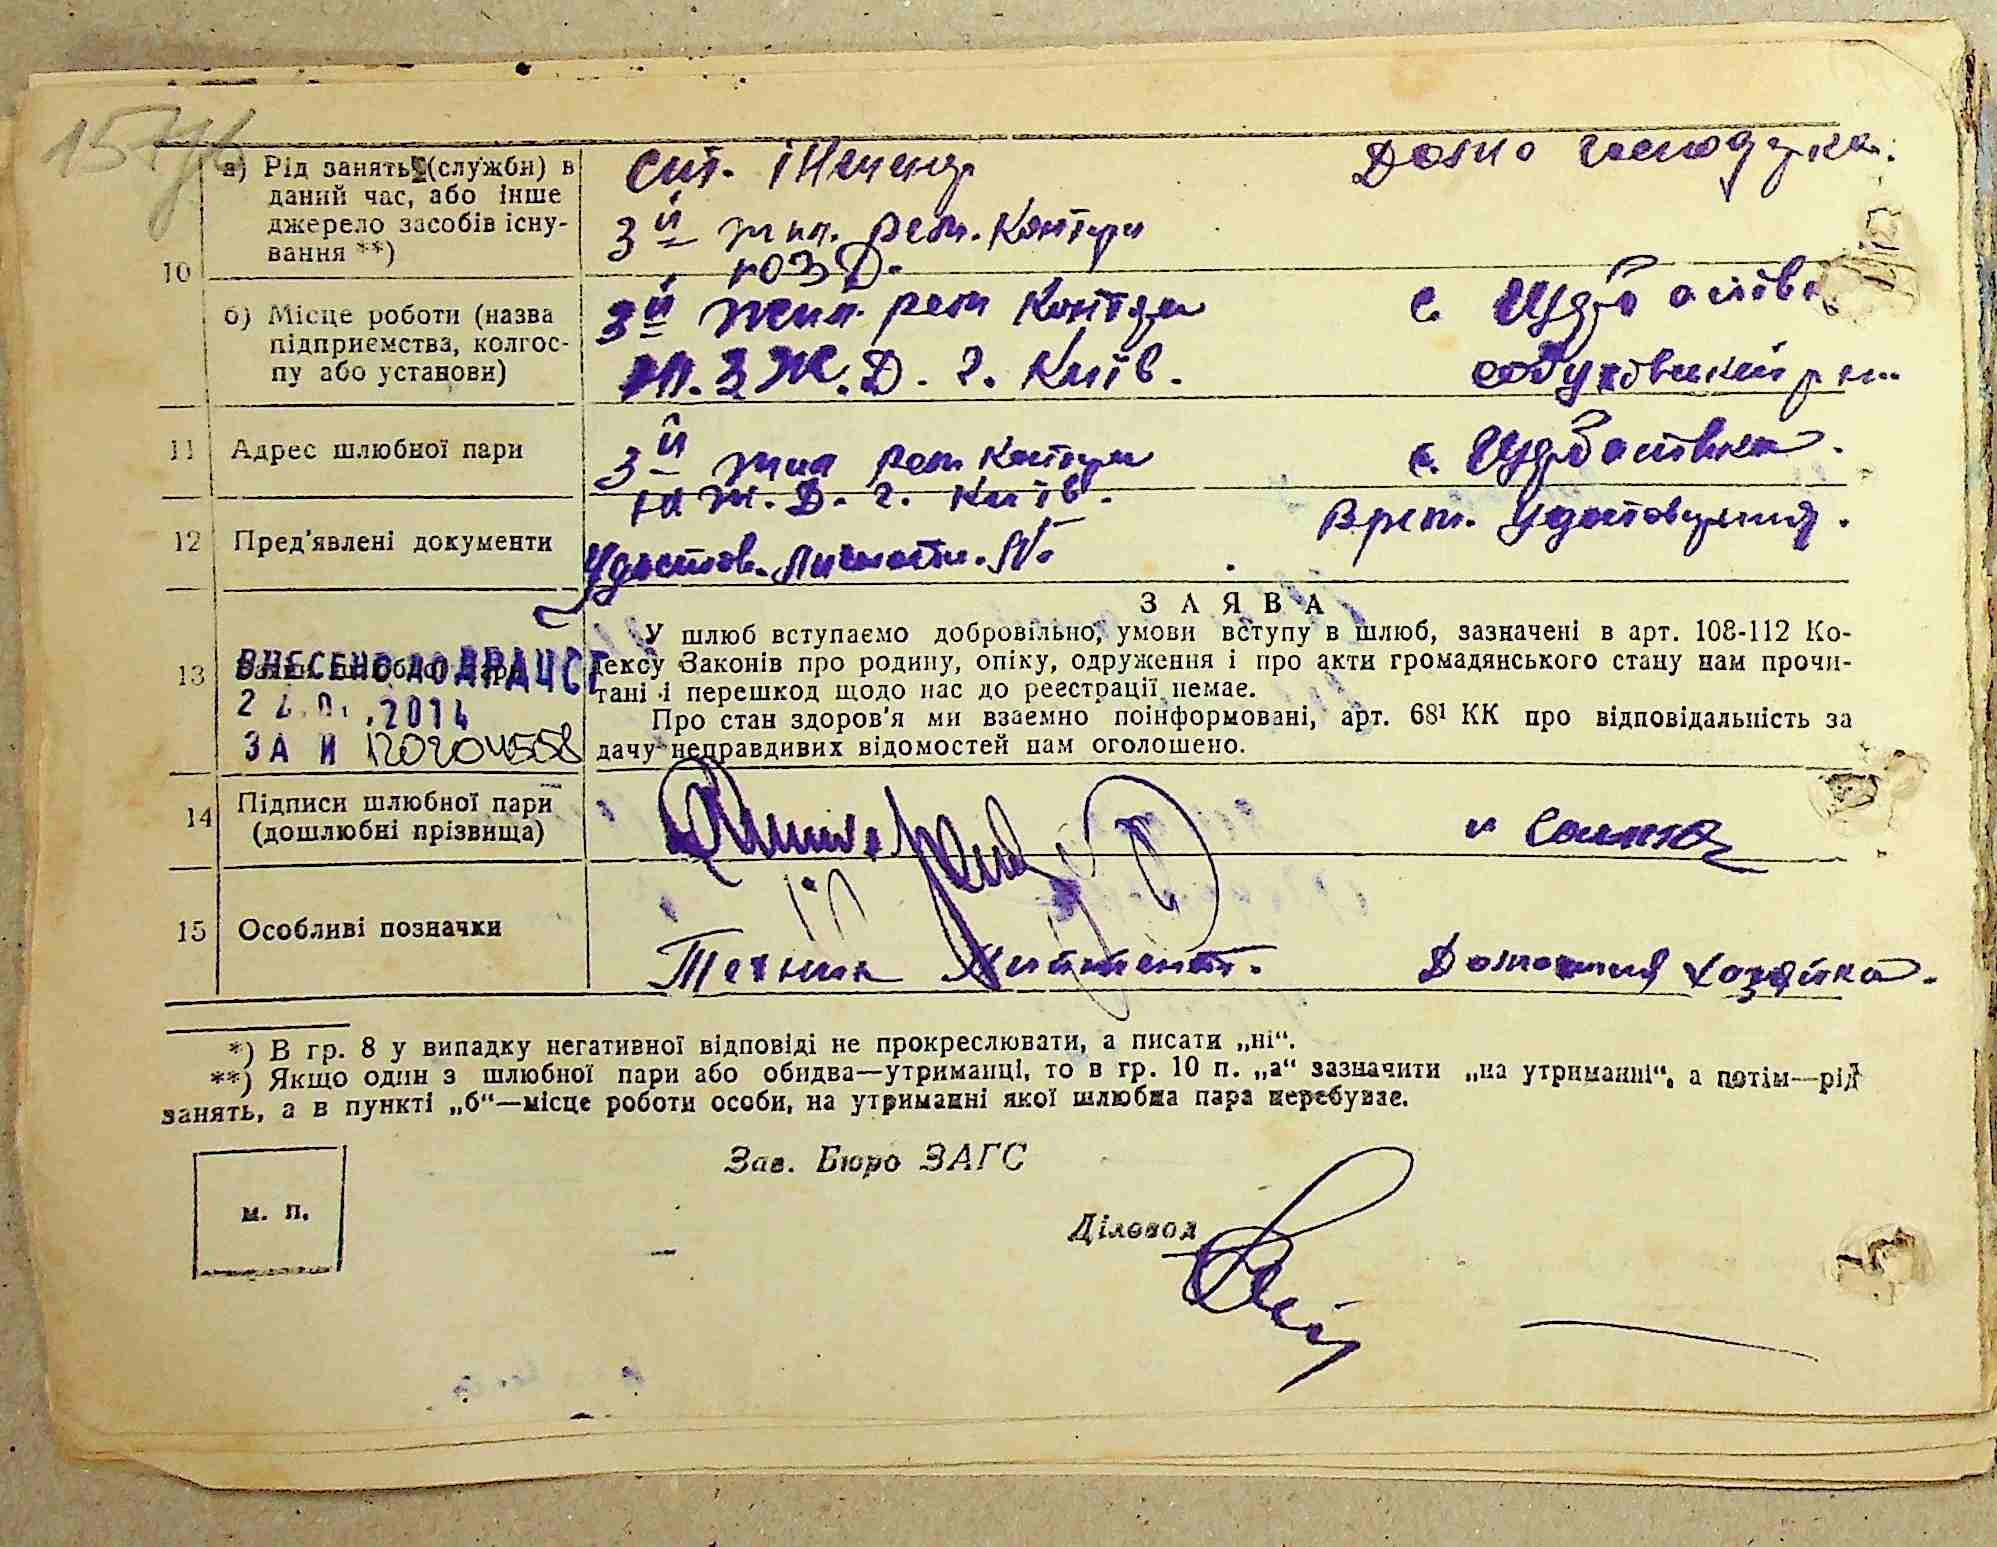 10
а) Рід занять (служби) в
даний час, або інше
джерело засобів існу-
вання **)
ст. інженер
3й жил. рем. Контори
ЮЗД.
Домо господарка.
б) Місце роботи (назва
підприємства, колгос-
пу або установи)
3й жил. рем Контора
Ю.З Ж.Д. г. Київ.
с.
обуховский р-н
11 Адрес шлюбної пари
3й жил рем Контори
Ю Ж.Д. г. Київ.
с.
12 Пред'явлені документи
Удостов. личности. №
Врем. Удостовірения.
З А Я В А
13
У шлюб вступаємо добровільно, умови вступу в шлюб, зазначені в арт. 108-112 Ко-
дексу Законів про родину, опіку, одруження і про акти громадянського стану нам прочи-
тані і перешкод щодо нас до реєстрації немає.
Про стан здоров'я ми взаємно поінформовані, арт. 68¹ КК про відповідальність за
дачу неправдивих відомостей нам оголошено.
ВНЕСЕНО ДО ДРАЦСГ
2014
ЗА №
14 Підписи шлюбної пари
(дошлюбні прізвища)
15 Особливі позначки
Техник
Домашняя хозяйка.
*) В гр. 8 у випадку негативної відповіді не прокреслювати, а писати „ні“.
**) Якщо один з шлюбної пари або обидва—утриманці, то в гр. 10 п. „а“ зазначити „на утриманні“, а потім—рід
занять, а в пункті „б“—місце роботи особи, на утриманні якої шлюбна пара перебуває.
Зав. Бюро ЗАГС
м. п.
Діловод